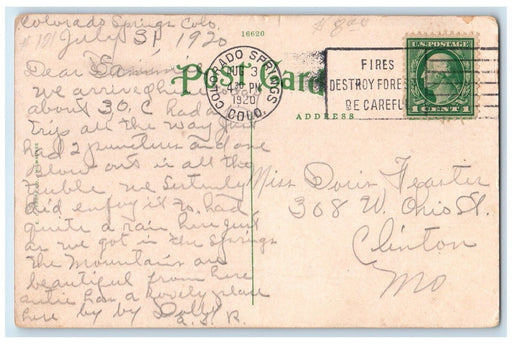 Colorado Springs Colo.
July 31, 1920
16620
Post Card
ADDRESS
COLORADO SPRINGS
PM
1920
COLO.
FIRES
DESTROY FORE
BE CAREFUL
U.S. POSTAGE
1 CENT 1
Dear
we arrived
about 30, C had a
trip all the way Just
had 2 punctures and one
blow out is all the
truble we Sertunly
did enjoy it to. had
quite a rain here Just
as we got in the Springs
The Mountains are
beautiful from here
autie has a lovely place
here by by Dolly
R.
Miss Doris Feaster
308 W. Ohio St.
Clinton
Mo